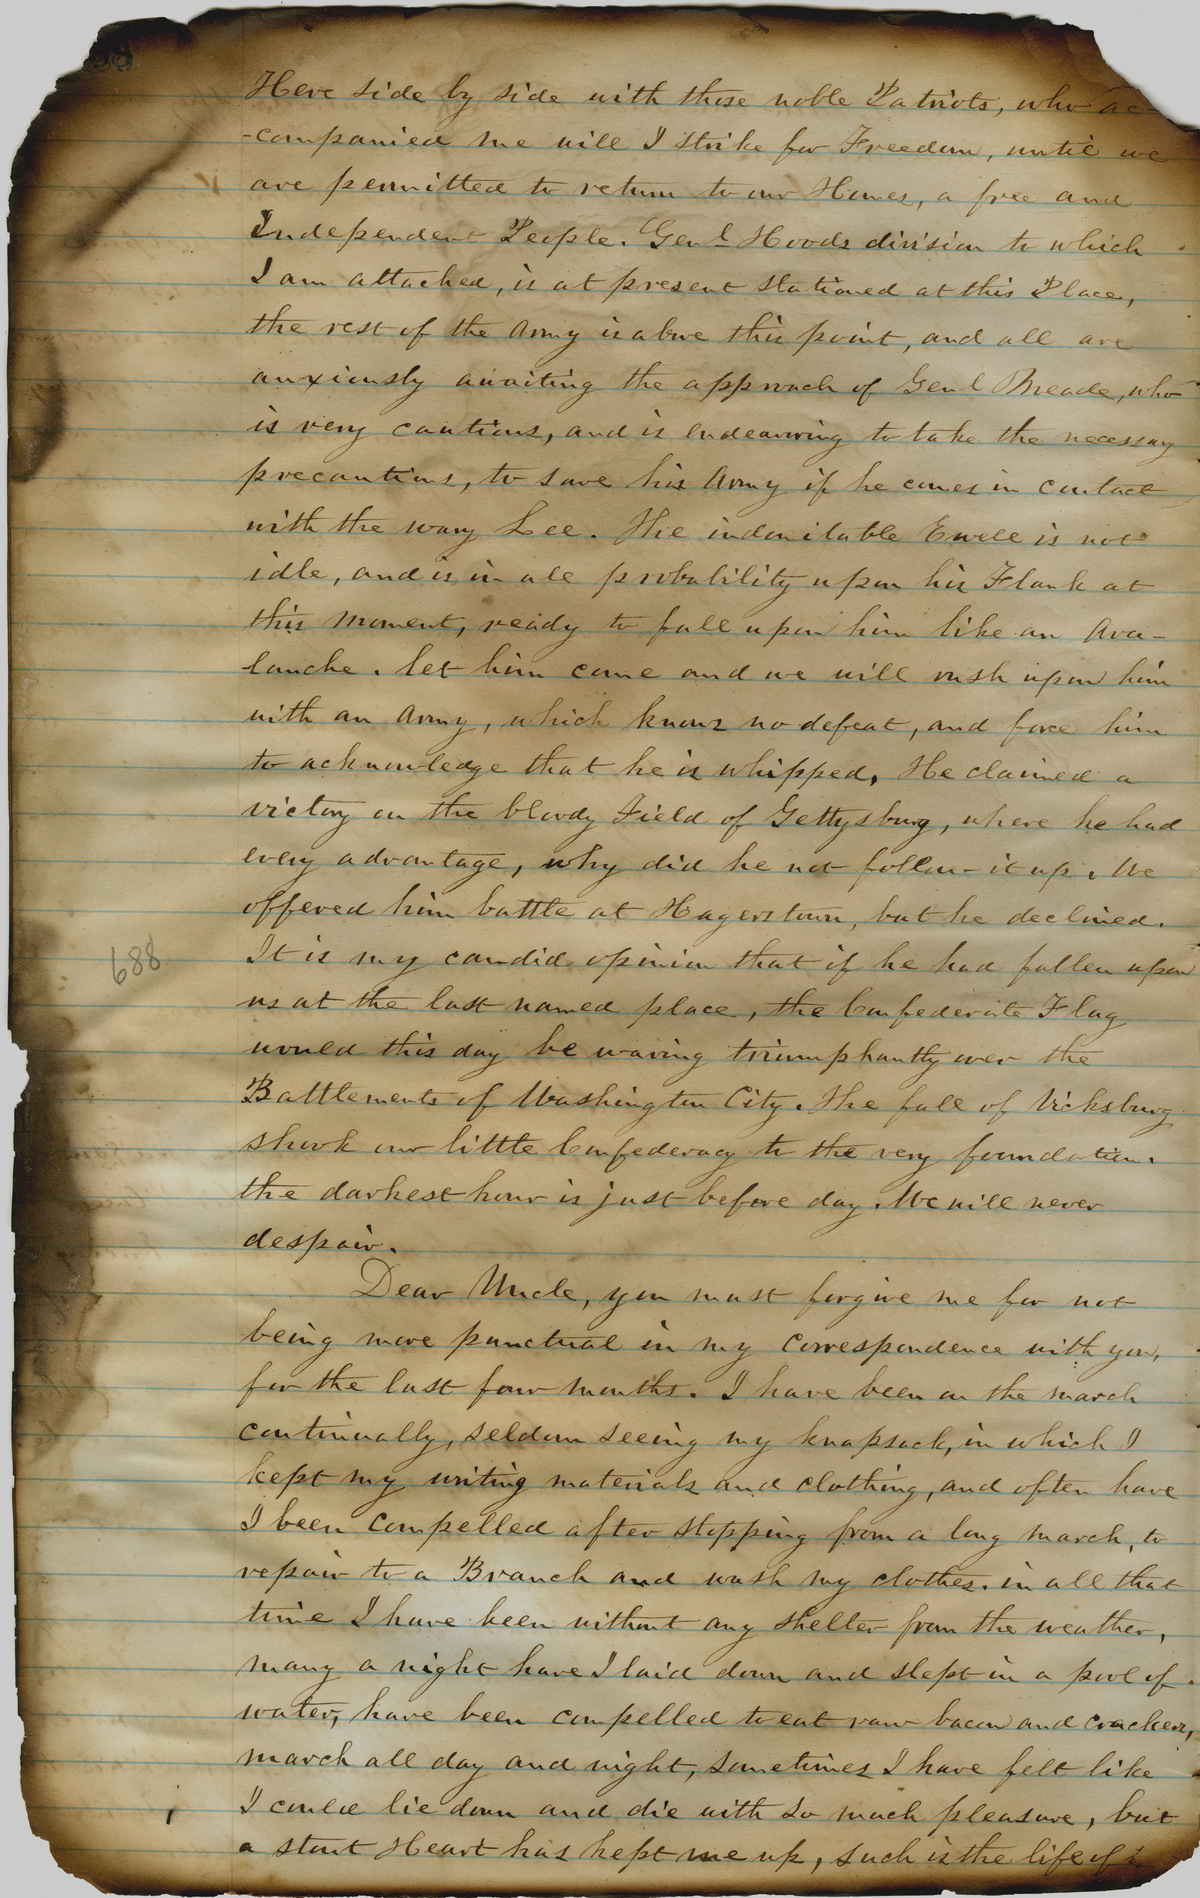 Here side by side with these noble Patriots, who ac-
-companied me will I strike for Freedom, until we
are permitted to return to our Homes, a free and
Independent People. Genl Hoods division to which
I am attached, is at present stationed at this Place,
the rest of the Army is above this point, and all are
anxiously awaiting the approach of Genl Meade, who
is very cautious, and is endeavoring to take the necessary
precautions, to save his Army if he comes in contact
with the wary Lee. The indomitable Ewell is not
idle, and is in all probability upon his Flank at
this moment, ready to fall upon him like an Ava-
lanche. let him come and we will rush upon him
with an Army, which knows no defeat, and force him
to acknowledge that he is whipped, He claimed a
victory on the bloody Field of Gettysburg, where he had
every advantage, why did he not follow it up. We
offered him battle at Hagerstown, but he declined.
It is my candid opinion that if he had fallen upon
688
us at the last named place, the Confederate Flag
would this day be waving triumphantly over the
Battlements of Washington City. The fall of Vicksburg
shook our little Confederacy to the very foundation.
the darkest hour is just before day. We will never
despair.
Dear Uncle, you must forgive me for not
being more punctual in my correspondence with you,
for the last four months. I have been on the march
continually, seldom seeing my knapsack, in which I
kept my writing materials and clothing, and often have
I been compelled after stopping from a long march, to
repair to a Branch and wash my clothes. in all that
time I have been without any shelter from the weather,
many a night have I laid down and slept in a pool of
water, have been compelled to eat raw bacon and crackers,
march all day and night, sometimes I have felt like
I could lie down and die with so much pleasure, but
a stout Heart has kept me up, such is the life of